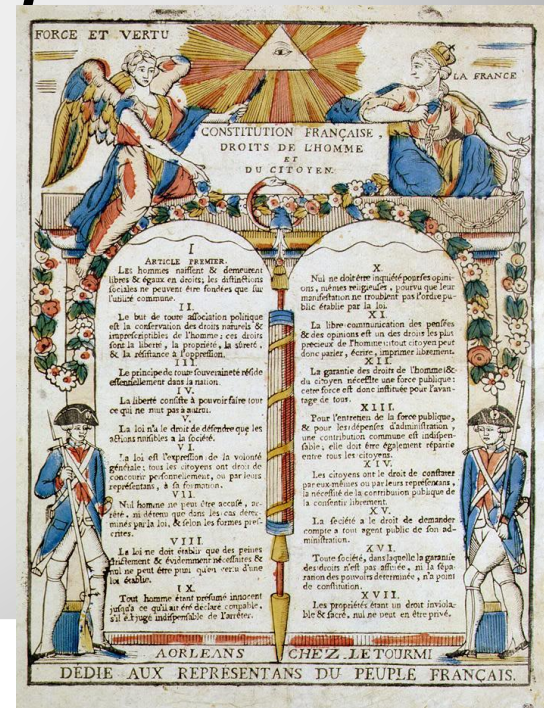 FORCE ET VERTU
LA FRANCE
CONSTITUTION FRANÇAISE,
DROITS DE L'HOMME
ET
DU CITOYEN.
I
ARTICLE PREMIER.
Les hommes naissent & demeurent
libres & égaux en droits; les distinctions
sociales ne peuvent être fondées que sur
l'utilité commune.
II.
Le but de toute association politique
est la conservation des droits naturels &
imprescriptibles de l'homme: ces droits
sont la liberté, la propriété, la sûreté,
& la résistance à l'oppression.
III.
Le principe de toute souveraineté réside
essentiellement dans la nation.
IV.
La liberté consiste à pouvoir faire tout
ce qui ne nuit pas à autrui.
V.
La loi n'a le droit de défendre que les
actions nuisibles à la société.
VI.
La loi est l'expression de la volonté
générale; tous les citoyens ont droit de
concourir personnellement, ou par leurs
représentans, à sa formation.
VII.
Nul homme ne peut être accusé, ar-
rêté, ni détenu que dans les cas déter-
minés par la loi, & selon les formes pres-
crites.
VIII.
La loi ne doit établir que des peines
strictement & évidemment nécessaires &
nul ne peut être puni qu'en vertu d'une
loi établie.
IX.
Tout homme étant présumé innocent
jusqu'à ce qu'il ait été déclaré coupable,
s'il est jugé indispensable de l'arrêter.
X.
Nul ne doit être inquiété pour ses opini-
ons, mêmes religieuses, pourvu que leur
manifestation ne troublent pas l'ordre pu-
blic établie par la loi.
XI.
La libre communication des pensées
& des opinions est un des droits les plus
précieux de l'homme: tout citoyen peut
donc parler, écrire, imprimer librement.
XII.
La garantie des droits de l'homme &
du citoyen nécessite une force publique:
cette force est donc instituée pour l'avan-
tage de tous.
XIII.
Pour l'entretien de la force publique,
& pour les dépenses d'administration,
une contribution commune est indispen-
sable; elle doit être également répartie
entre tous les citoyens.
XIV.
Les citoyens ont le droit de constater
par eux-mêmes ou par leurs représentans,
la nécessité de la contribution publique de
la consentir librement.
XV.
La société a le droit de demander
compte a tout agent public de son ad-
ministration.
XVI.
Toute société, dans laquelle la garantie
des droits n'est pas assurée, ni la sépa-
ration des pouvoirs déterminée, n'a point
de constitution.
XVII.
Les propriétés étant un droit inviola-
ble & sacré, nul ne peut en être privé.
A ORLEANS CHEZ LETOURMI
DÉDIE AUX REPRÉSENTANS DU PEUPLE FRANÇAIS.